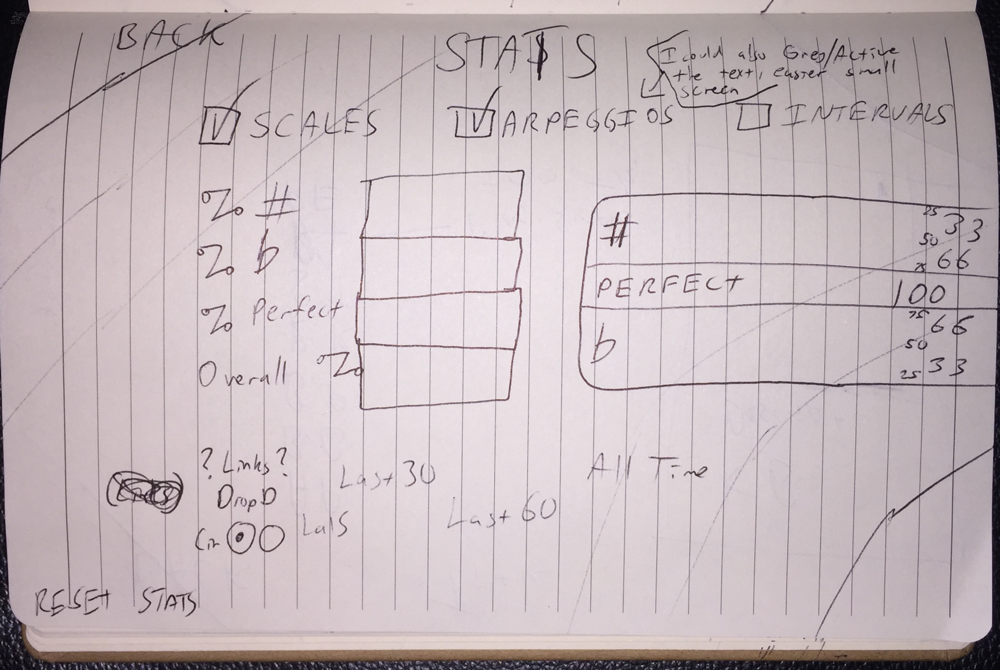 BACK
STATS
I could also Grey/Active
the text, easier small
screen
SCALES
ARPEGGIOS
INTERVALS
% #
% b
% Perfect
Overall %
#
25 33
50
75 66
PERFECT 100
b
75 66
50
25 33
? Links ?
DropD
Last 30
Last 60
All Time
RESET STATS